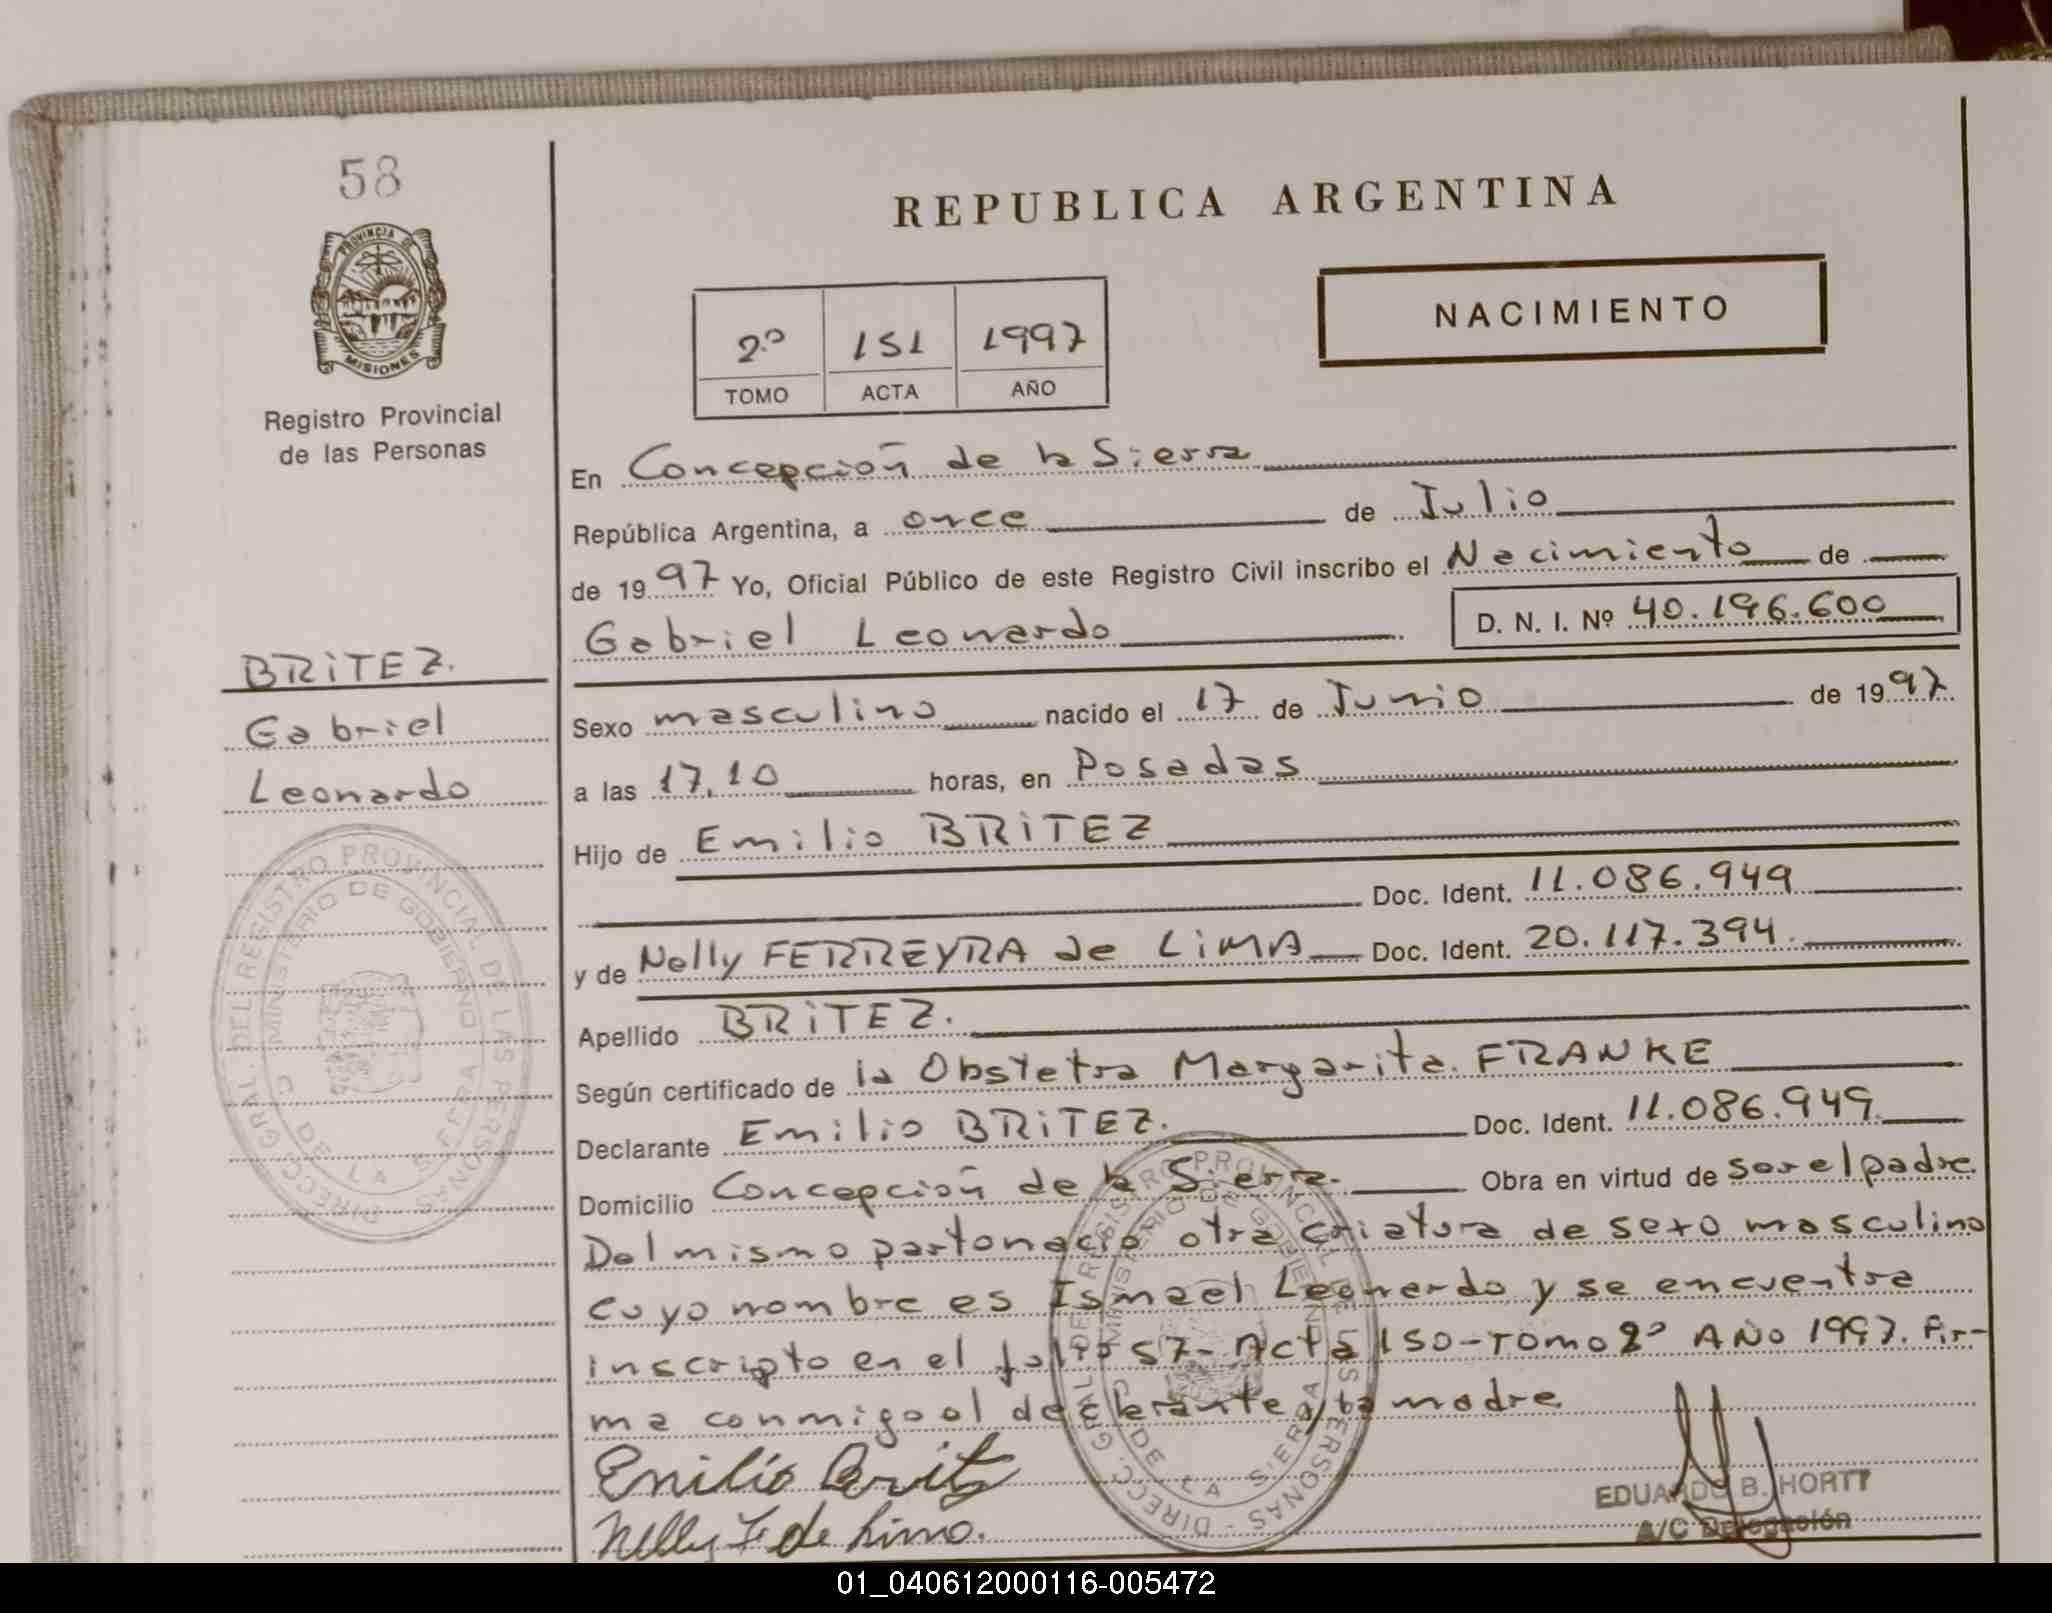 58
PROVINCIA DE
MISIONES
Registro Provincial
de las Personas
BRITEZ.
Gabriel
Leonardo
DIRECC. GRAL. DEL REGISTRO PROVINCIAL DE LAS PERSONAS
MINISTERIO DE GOBIERNO
C. DE LA SIERRA
REPUBLICA ARGENTINA
NACIMIENTO
2º 151 1997
TOMO ACTA AÑO
En Concepción de la Sierra
República Argentina, a once de Julio
de 1997 Yo, Oficial Público de este Registro Civil inscribo el Nacimiento de
Gabriel Leonardo D. N. I. Nº 40.196.600
Sexo masculino nacido el 17 de Junio de 1997.
a las 17,10 horas, en Posadas
Hijo de Emilio BRITEZ
Doc. Ident. 11.086.949
y de Nelly FERREYRA de LIMA Doc. Ident. 20.117.394.
Apellido BRITEZ.
Según certificado de la Obstetra Margarita FRANKE
Declarante Emilio BRITEZ. Doc. Ident. 11.086.949.
Domicilio Concepción de la Sierra. Obra en virtud de ser el padre.
Del mismo parto nació otra criatura de sexo masculino
cuyo nombre es Ismael Leonardo y se encuentra
inscripto en el folio 57- Acta 150-Tomo 2º AÑO 1997. Fir-
ma conmigo el declarante y la madre
Emilio Britez
Nelly F de Lima.
EDUARDO B. HORTT
A/C Delegación
DIRECC. GRAL. DEL REGISTRO PROVINCIAL DE LAS PERSONAS
MINISTERIO DE GOBIERNO
C. DE LA SIERRA
01_040612000116-005472